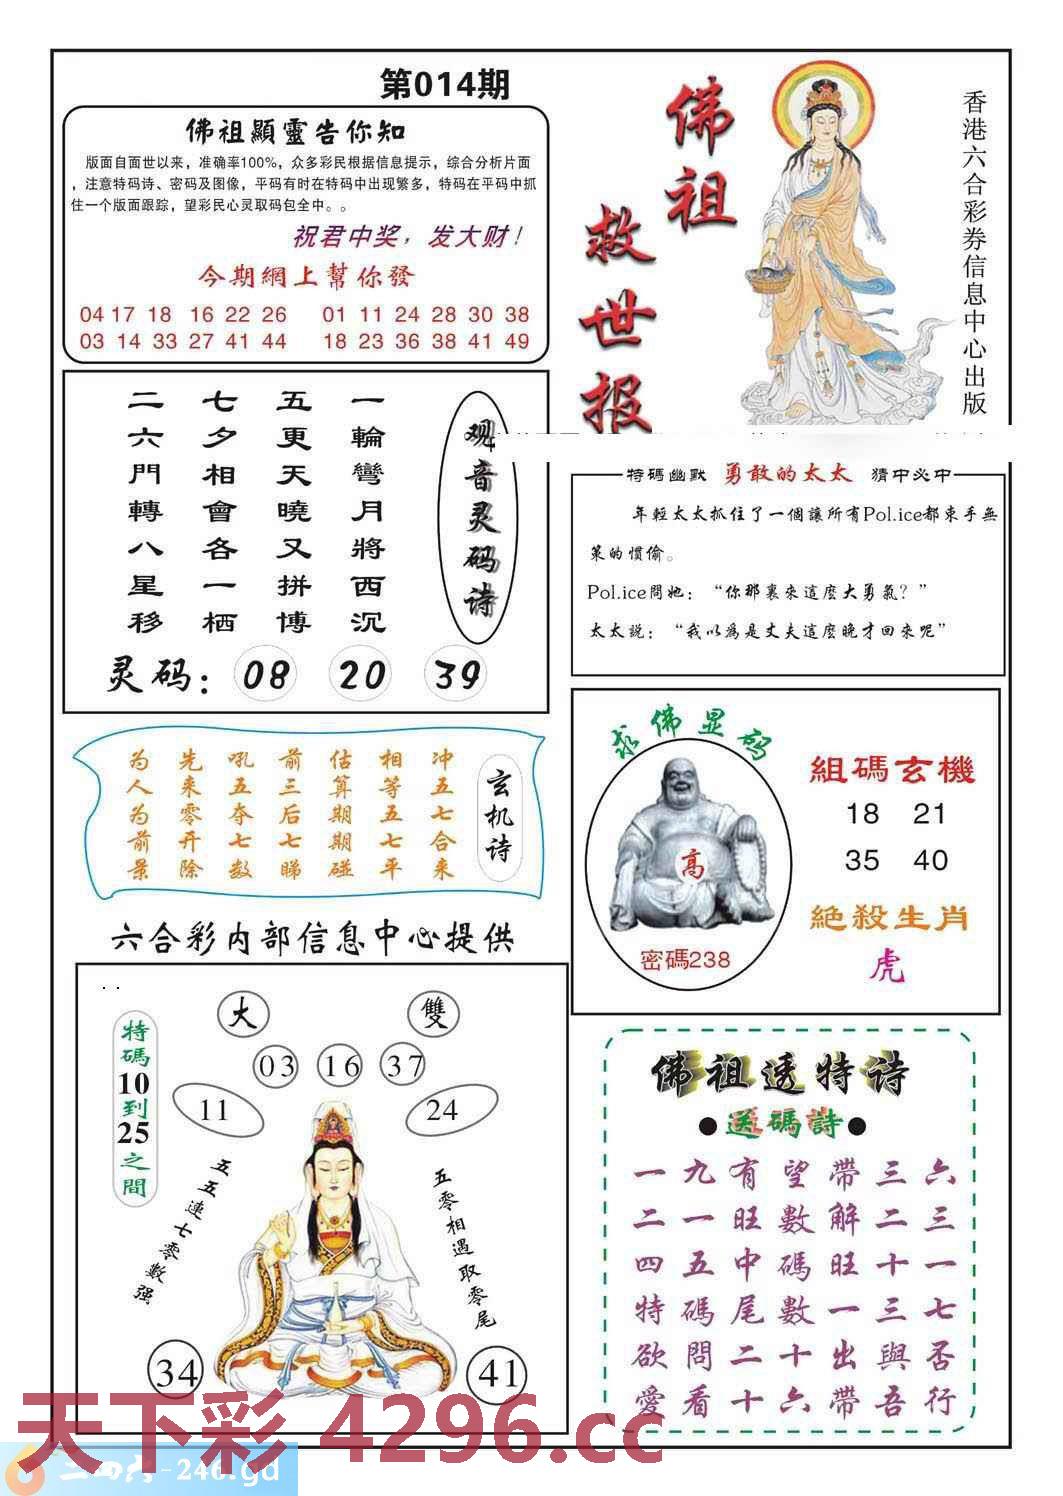 第014期
佛祖顯靈告你知
版面自面世以来，准确率100%，众多彩民根据信息提示，综合分析片面
，注意特码诗、密码及图像，平码有时在特码中出现繁多，特码在平码中抓
住一个版面跟踪，望彩民心灵取码包全中。。
祝君中奖，发大财！
今期網上幫你發
04 17 18 16 22 26 01 11 24 28 30 38
03 14 33 27 41 44 18 23 36 38 41 49
佛祖
救世报
香港六合彩券信息中心出版
观音灵码诗
一輪彎月將西沉
五更天曉又拼博
七夕相會各一栖
二六門轉八星移
灵码：08 20 39
特碼幽默 勇敢的太太 猜中必中
年輕太太抓住了一個讓所有Pol.ice都束手無
策的慣偷。
Pol.ice問她：“你那裏來這麽大勇氣？”
太太説：“我以爲是丈夫這麽晚才回來呢”
玄机诗
冲五七合来
相等五七平
估算期期碰
前三后七睇
吼五夺七数
先来零开除
为人为前景
求佛显码
高
密碼238
組碼玄機
18 21
35 40
絕殺生肖
虎
六合彩内部信息中心提供
大
雙
03 16 37
11
24
特碼10到25之間
五五連七零數强
五零相遇取零尾
34
41
佛祖透特诗
●送碼詩●
一九有望帶三六
二一旺數解二三
四五中碼旺十一
特碼尾數一三七
欲問二十出與否
愛看十六帶吾行
天下彩 4296.cc
二四六-246.gd